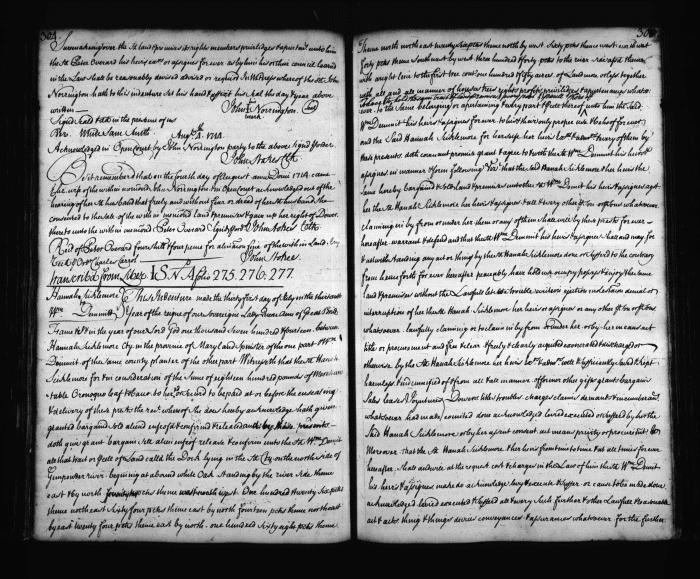 304
over the sd land & premises & rights members priviledges & unto him
the sd Peter Overard his heirs & or assigns for ever as by him his or their council learned
in the Law shall be reasonably devised advised or required In Witness whereof the sd John
Norrington hath to this indenture set his hand & affixt his seal the day & year above
written
John Norrington
mark
Signed Seald & dd in the presents of us
Wm Smith Augst 1714
Acknowledged in Open Court by John Norrington party to the above
John Stokes Clk
Be it remembered that on the fourth day of August anno Domini 1714 came
wife of the within mentiond John Norrington in Open Court acknowledged out of the
hearing of her sd husband that freely and without fear or dread of her sd husband she
consented to the sale of the within mentiond land & premises & gave up her right of Dower
thereto unto the within mentiond Peter Overard John Stokes Clk
Recd of Peter Overard four shill & four pence for alienation fine of the within Land
Charles Carroll John Stokes
transcribed from Liber IS No A folio 275. 276. 277.
Hannah Sicklemore This Indenture made the thirty first day of July in the thirteenth
Wm Demmitt Year of the reigne of our Sovereign Lady Anne of Great Brittn
France & & in the year of our Lord God one thousand Seven hundred & fourteen between
Hannah Sicklemore in the province of Maryland spinster of the one part & Wm
Demmitt of the same county planter of the other part Witnesseth that the sd Hannah
Sicklemore for & in consideration of the Sume of eighteen hundred pounds of Merchan
table Oronoque leaf tobacco to her secured to be paid at or before the ensealing
& delivery of these prsts the rect whereof she does hereby acknowledge hath given
granted bargained sold aliend enfeofd & confirmd & released and by these presents
doth give grant bargain sell alien enfeof release & confirm unto the sd Wm Demmitt
all that tract or psell of Land called the Dock lying in the sd Cty on the north side of
Gunpowder river begining at a bound white Oak Standing by the river side thence
east & by north perches thence east One hundred twenty six pchs
thence north east sixty four pches thence east by north fourteen pchs thence north east
by east twenty four pches thence east by north one hundred sixty eight pches thence
305
Thence north north east twenty pches thence north by west sixty pches thence west north west
forty pches thence South east by west three hundred & forty pches to the river &
with a right line to the first tree cont one hundred & fifty acres of Land more or less together
with all and all manner of houses rights profits priviledges & appurtenances whats
to the same belonging or apertaining & every part & psell thereof unto him the said
Wm Demmitt his heirs & assigns for ever to his & their only proper use & behoof for ever
and the Said Hannah Sicklemore for her self her heirs Exrs & admrs & every of them by
these presents doth covenant promise grant & agree to & with the sd Wm Demmitt his heirs &
assigns in manner & form following Vizt that the said Hannah Sicklemore & her heirs the
same hereby bargained & sold land & premises unto the sd Wm Demitt his heirs & assigns agst
her the sd Hannah Sicklemore her heirs & assigns & all & every other psn or psons whatsoever
claiming in by from or under her them or any of them shall will by these prsts for ever
hereafter warrant & defend and that the sd Wm Demmitt his heirs & assigns shall and may for
& notwithstanding any act or thing by the sd Hannah Sicklemore done to the contrary
from hence forth for ever hereafter peaceably have hold use occupy possess & enjoy the same
land & premises without the Lawfull lett trouble eviction ejection molestation denial or
interruption of her the sd Hannah Sicklemore her heirs or assigns or any other psn or psons
whatsoever lawfully claiming or to claim in by from or under her or by her means act
title or procurement and free & clear & freely & clearly acquitted exonerated & discharged or
otherwise by the sd Hannah Sicklemore her heirs Exrs & admrs well & sufficiently saved & kept
harmless & indemnified of & from all & all manner of former other gifts grants bargains
Sales leases & Jointures Dowers titles troubles charges claims demands & incumbrances
whatsoever had made comitted done acknowledged leved executed or suffered by her the
Said Hannah Sicklemore or by her assent consent act means privity or procurement &
Moreover that the sd Hannah Sicklemore & her heirs from time to time & at all times for ever
hereafter shall and will at the request cost & charges in the Law of him the sd Wm Demmit
his heirs & assigns make do acknowledge levy & execute & suffer or cause to be made done
acknowledged levied executed & suffered all & every such further & other Lawfull & reasonable
act & acts thing & things devices conveyances & assurances whatsoever for the further